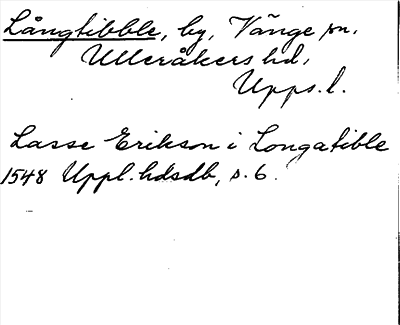 Långtibble, by, Vänge sn,
Ulleråkers hd,
Upps. l.
Lasse Erikson i Longatible
1548 Uppl. hdsdb, s. 6.